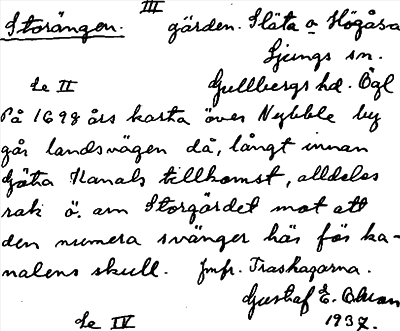 III
Storängen. gärden. Släta o Högåsa
Ljungs sn.
Se II Gullbergs hd. Ögl
På 1698 års karta över Nybble by
går landsvägen då, långt innan
Göta Kanals tillkomst, alldeles
rak ö. om Storgärdet mot att
den numera svänger här för ka-
nalens skull. Jmfr. Traskagarna.
Gustaf E. Olsson
Se IV 1937.